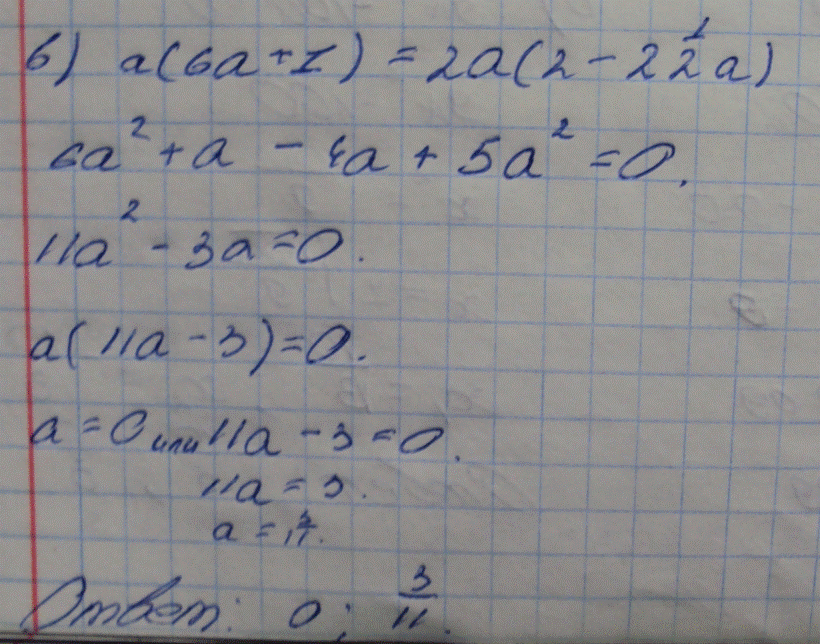 б) a(6a+1) = 2a(2 - 2 1/2 a)
6a² + a - 4a + 5a² = 0.
11a² - 3a = 0.
a(11a - 3) = 0.
a = 0 или 11a - 3 = 0.
11a = 3.
a = 3/11.
Ответ: 0; 3/11.